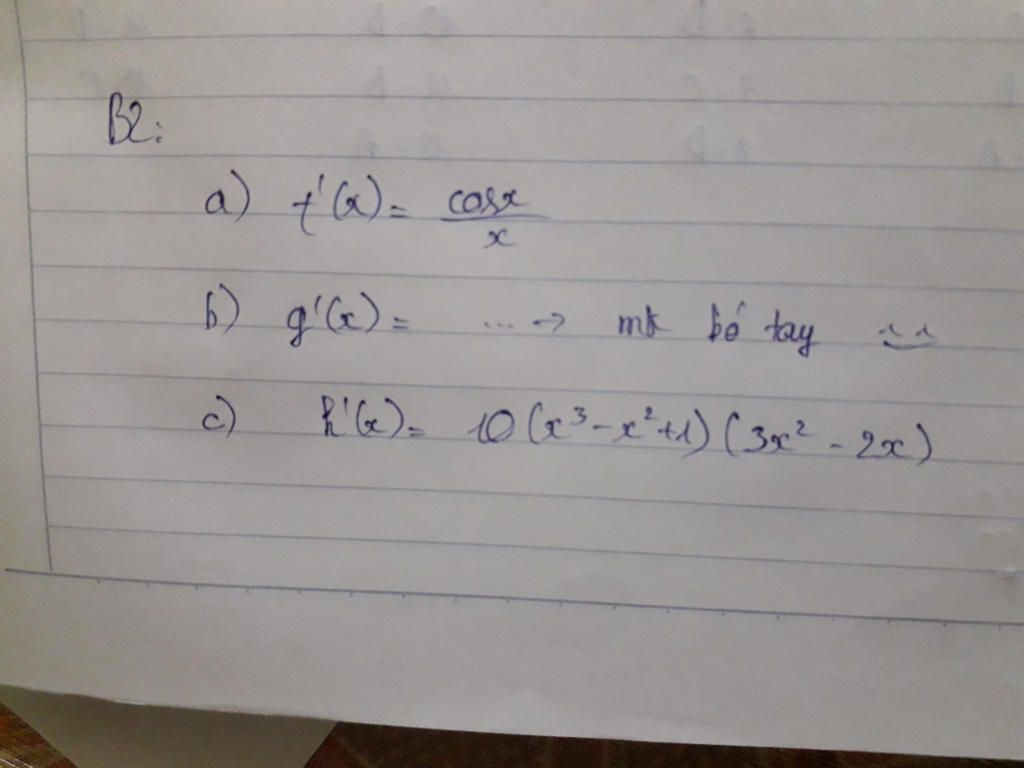 B2:
a) f'(x) = cosx / x
b) g'(x) = ... → mk bó tay ^‿^
c) h'(x) = 10(x³-x²+1)(3x²-2x)